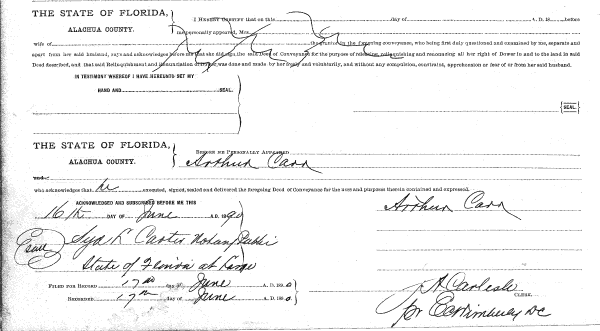 THE STATE OF FLORIDA,
ALACHUA COUNTY.
I HEREBY CERTIFY that on this day of A. D. 18 before
me personally appeared, Mrs.
wife of the grantor by the foregoing conveyance, who being first duly questioned and examined by me, separate and
apart from her said husband, says and acknowledges before me that she did sign the said Deed of Conveyance for the purpose of releasing, relinquishing and renouncing all her right of Dower in and to the land in said
Deed described, and that said Relinquishment and Renunciation of Dower was done and made by her freely and voluntarily, and without any compulsion, constraint, apprehension or fear of or from her said husband.
IN TESTIMONY WHEREOF I HAVE HEREUNTO SET MY
HAND AND SEAL.
SEAL.
THE STATE OF FLORIDA,
ALACHUA COUNTY.
BEFORE ME PERSONALLY APPEARED
Arthur Carr
and
who acknowledges that he executed, signed, sealed and delivered the foregoing Deed of Conveyance for the uses and purposes therein contained and expressed.
ACKNOWLEDGED AND SUBSCRIBED BEFORE ME THIS
16th DAY OF June A.D. 1890
Arthur Carr
Syd L Carter Notary Public
State of Florida at Large
FILED FOR RECORD 17th day of June A. D. 1890
RECORDED 17th day of June A. D. 1890
J A Carlisle
CLERK.
pr DC